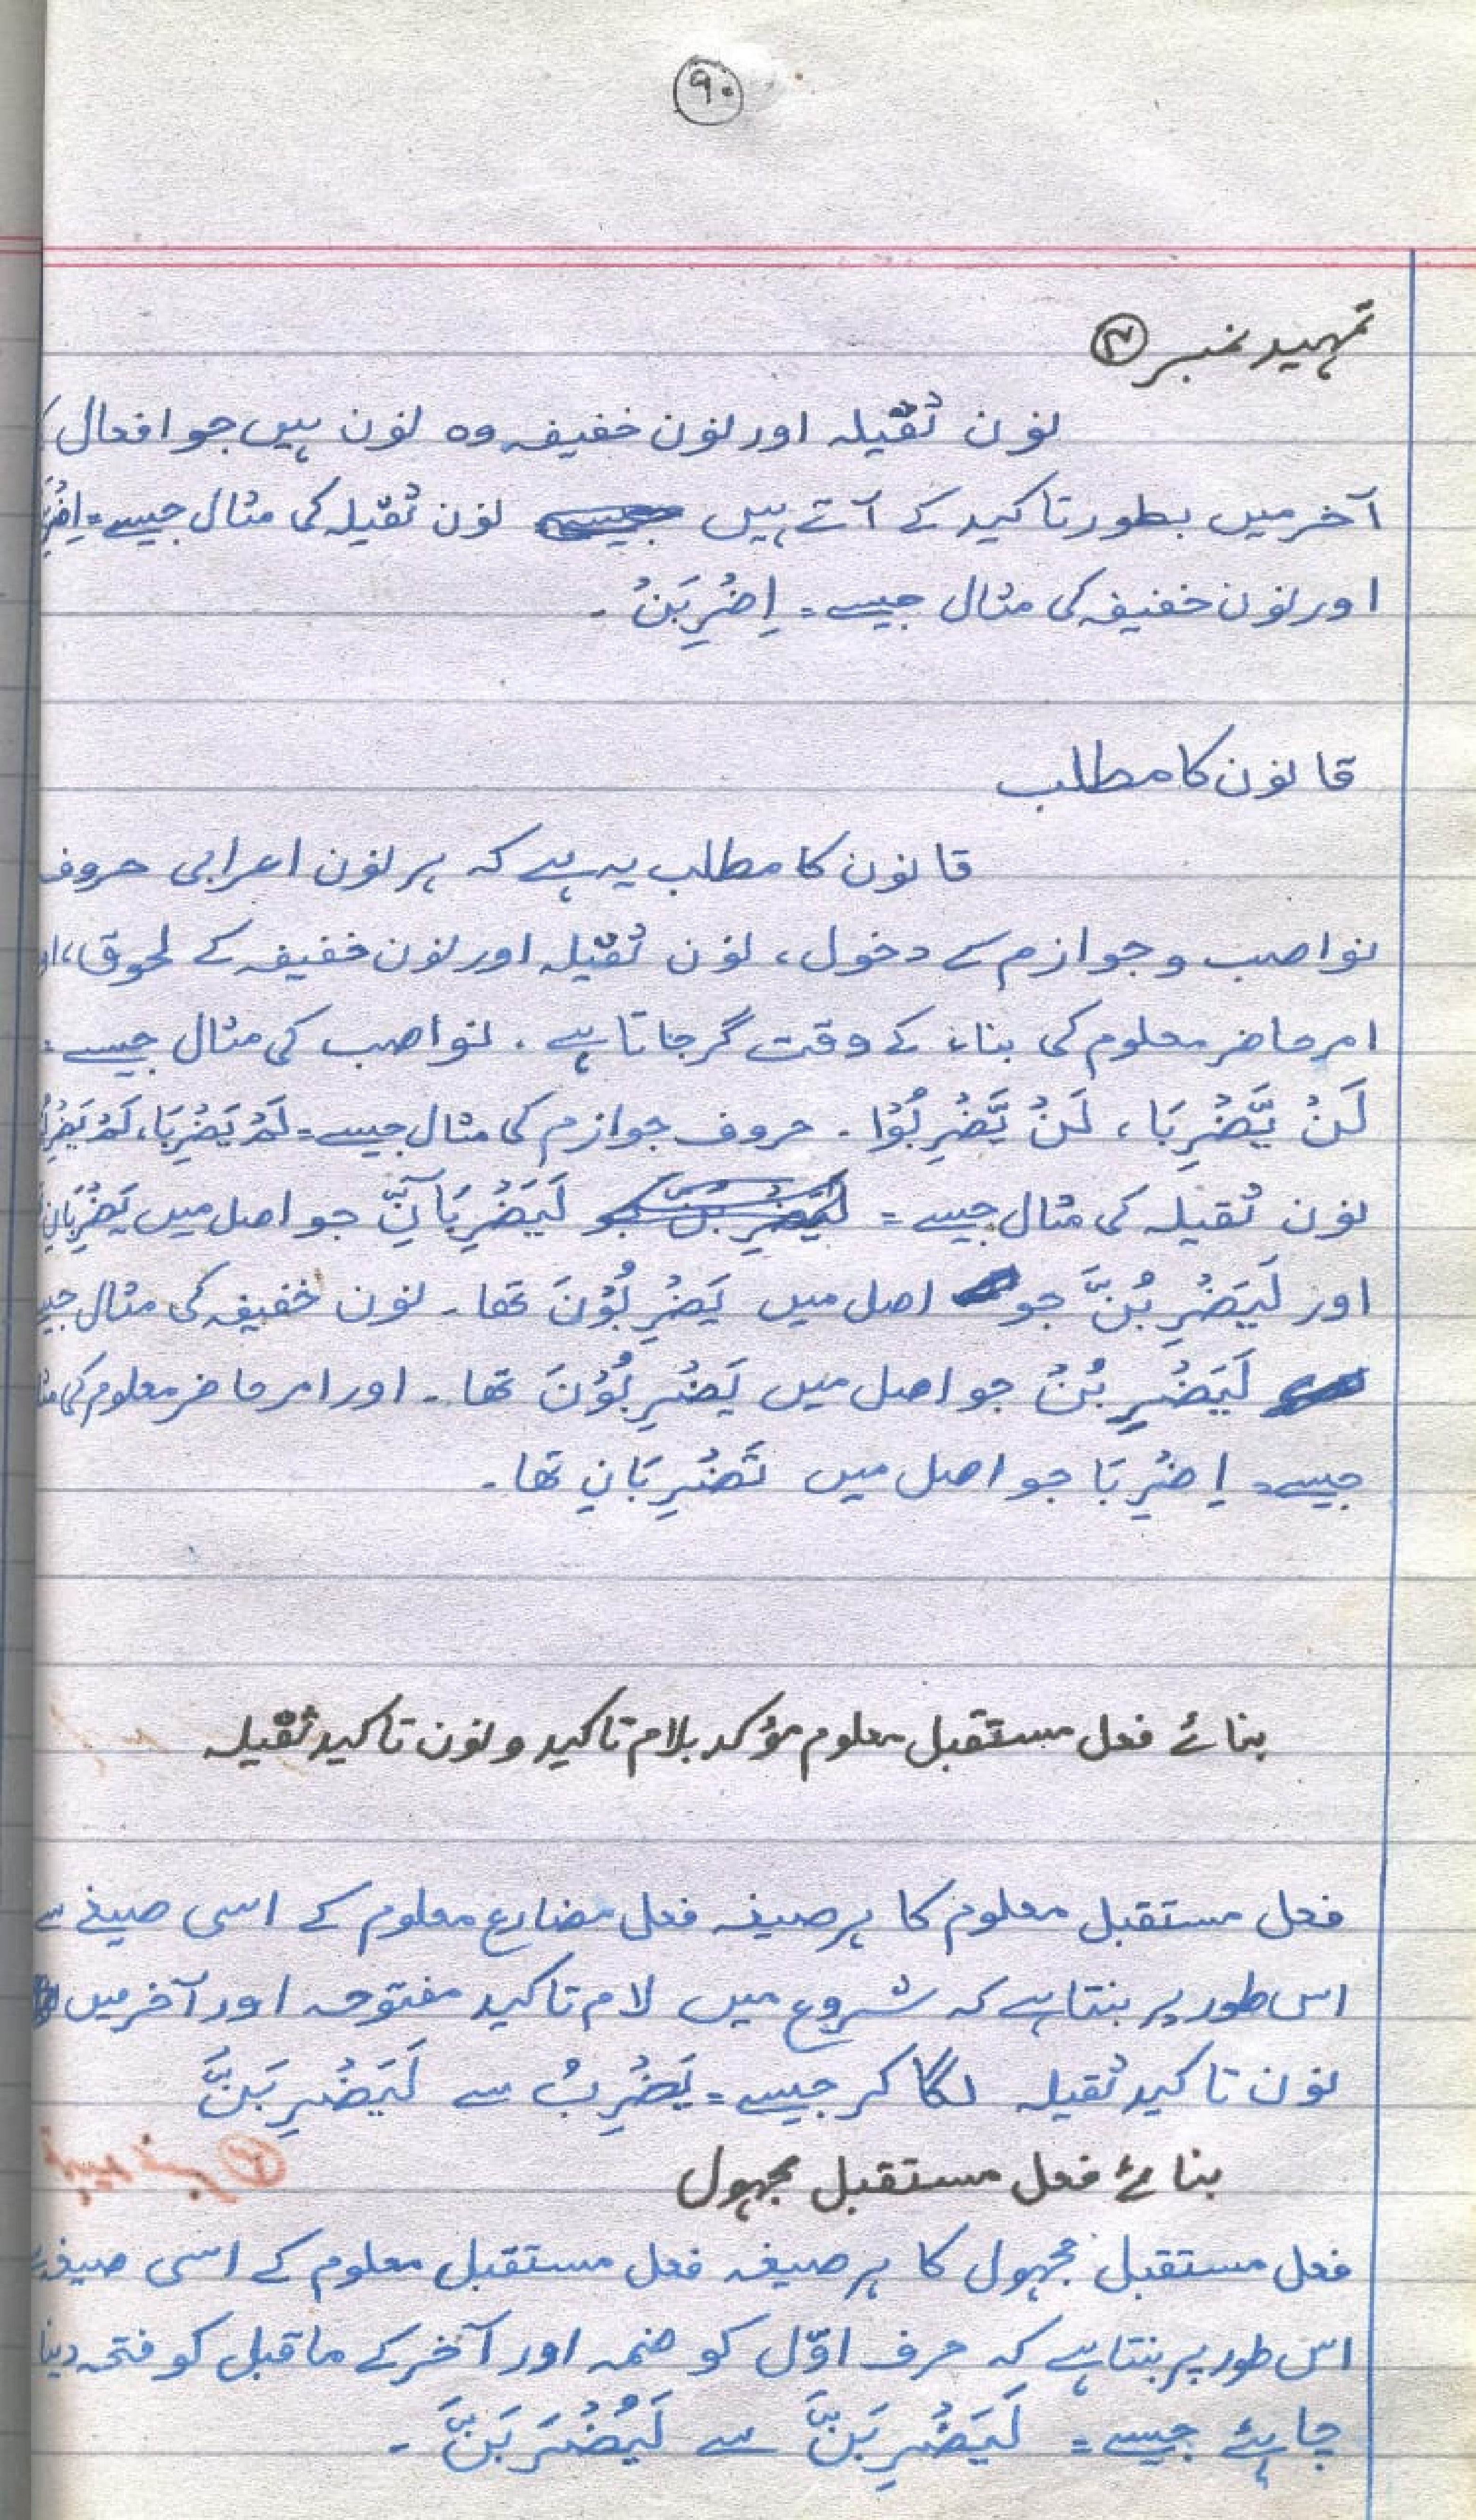 ۹۰
تمہید نمبر ۲
نون ثقیلہ اور نون خفیفہ وہ نون ہیں جو افعال
آخر میں بطور تاکید کے آتے ہیں نون ثقیلہ کی مثال جیسے =
اور نون خفیفہ کی مثال جیسے = اِضْرِبَنْ ۔
قانون کا مطلب
قانون کا مطلب یہ ہے کہ ہر نون اعرابی حروف
نواصب و جوازم کے دخول ، نون ثقیلہ اور نون خفیفہ کے لحوق ،
امر حاضر معلوم کی بناء کے وقت گر جاتا ہے ۔ نواصب کی مثال جیسے =
لَنْ یَّضْرِبَا ، لَنْ یَّضْرِبُوْا ۔ حروف جوازم کی مثال جیسے = لَمْ یَضْرِبَا ،
نون ثقیلہ کی مثال جیسے = لَیَضْرِبَآنِّ جو اصل میں یَضْرِبَانِ
اور لَیَضْرِبُنَّ جو اصل میں یَضْرِبُوْنَ تھا ۔ نون خفیفہ کی مثال
لَیَضْرِبُنْ جو اصل میں یَضْرِبُوْنَ تھا ۔ اور امر حاضر معلوم کی
جیسے = اِضْرِبَا جو اصل میں تَضْرِبَانِ تھا ۔
بنائے فعل مستقبل معلوم مؤکد بلام تاکید و نون تاکید ثقیلہ
فعل مستقبل معلوم کا ہر صیغہ فعل مضارع معلوم کے اسی صیغے سے
اس طور پر بنتا ہے کہ شروع میں لام تاکید مفتوحہ اور آخر میں
نون تاکید ثقیلہ لگا کر جیسے = یَضْرِبُ سے لَیَضْرِبَنَّ
بنائے فعل مستقبل مجہول
فعل مستقبل مجہول کا ہر صیغہ فعل مستقبل معلوم کے اسی صیغہ
اس طور پر بنتا ہے کہ حرف اوّل کو ضمہ اور آخر کے ماقبل کو فتحہ دینا
چاہئے جیسے = لَیَضْرِبَنَّ سے لَیُضْرَبَنَّ ۔